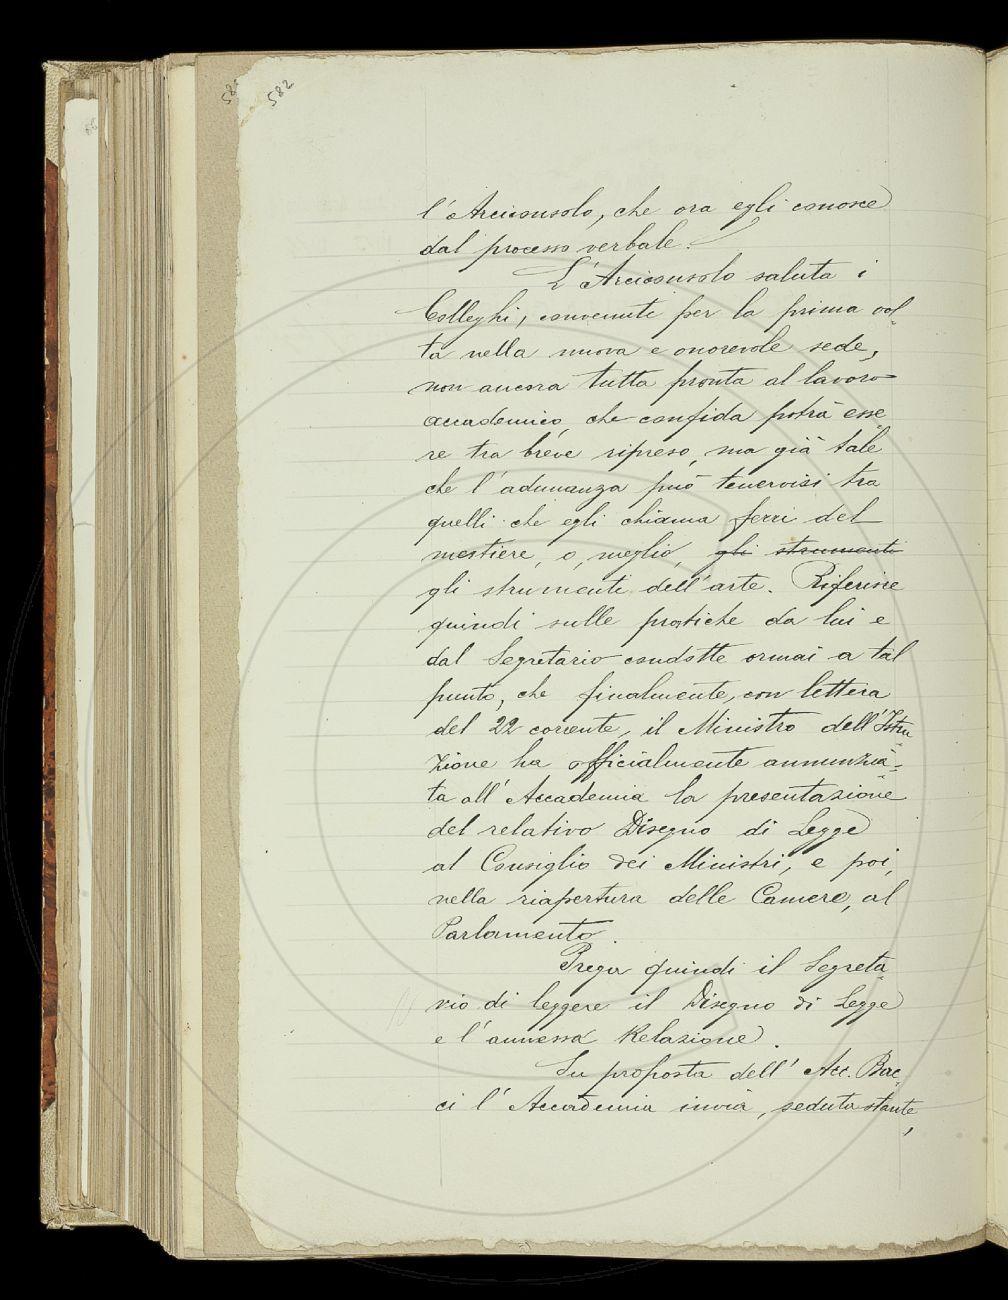 582
l'Arciconsolo, che ora egli conosce
dal processo verbale.
L'Arciconsolo saluta i
Colleghi, convenuti per la prima vol-
ta nella nuova e onorevole sede,
non ancora tutta pronta al lavoro
accademico, che confida potrà esse
re tra breve ripreso, ma già tale
che l'adunanza può tenervisi tra
quelli che egli chiama ferri del
mestiere, o, meglio, gli strumenti
gli strumenti dell'arte. Riferisce
quindi sulle pratiche da lui e
dal Segretario condotte ormai a tal
punto, che finalmente, con lettera
del 22 corrente, il Ministro dell'Istru
zione ha officialmente annunzia-
ta all'Accademia la presentazione
del relativo Disegno di Legge
al Consiglio dei Ministri, e poi,
nella riapertura delle Camere, al
Parlamento.
Prega quindi il Segreta
rio di leggere il Disegno di Legge
e l'annessa Relazione.
Su proposta dell'Acc. Bac-
ci l'Accademia invia, seduta stante,